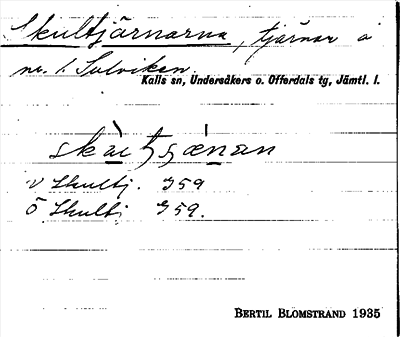 Skultjärnarna, tjärnar å
nr. 1 Sulviken.
Kalls sn, Undersåkers o. Offerdals tg, Jämtl. l.
V Skultj. 359
Ö Skultj 359.
BERTIL BLOMSTRAND 1935